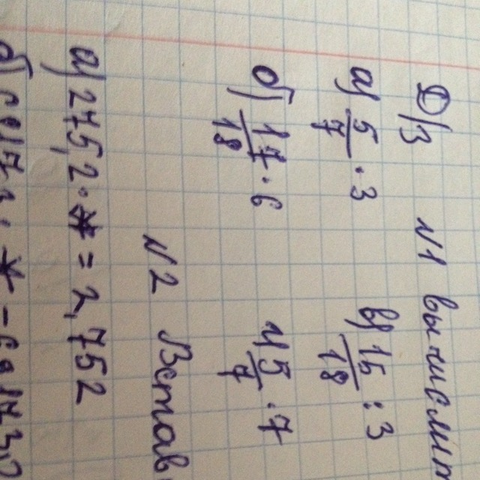 Д/З №1 вычислит
а) 5/7 · 3 в) 15/18 : 3
б) 17/18 · 6 г) 5/7 · 7
№2 Встав
а) 275,2 · * = 2,752